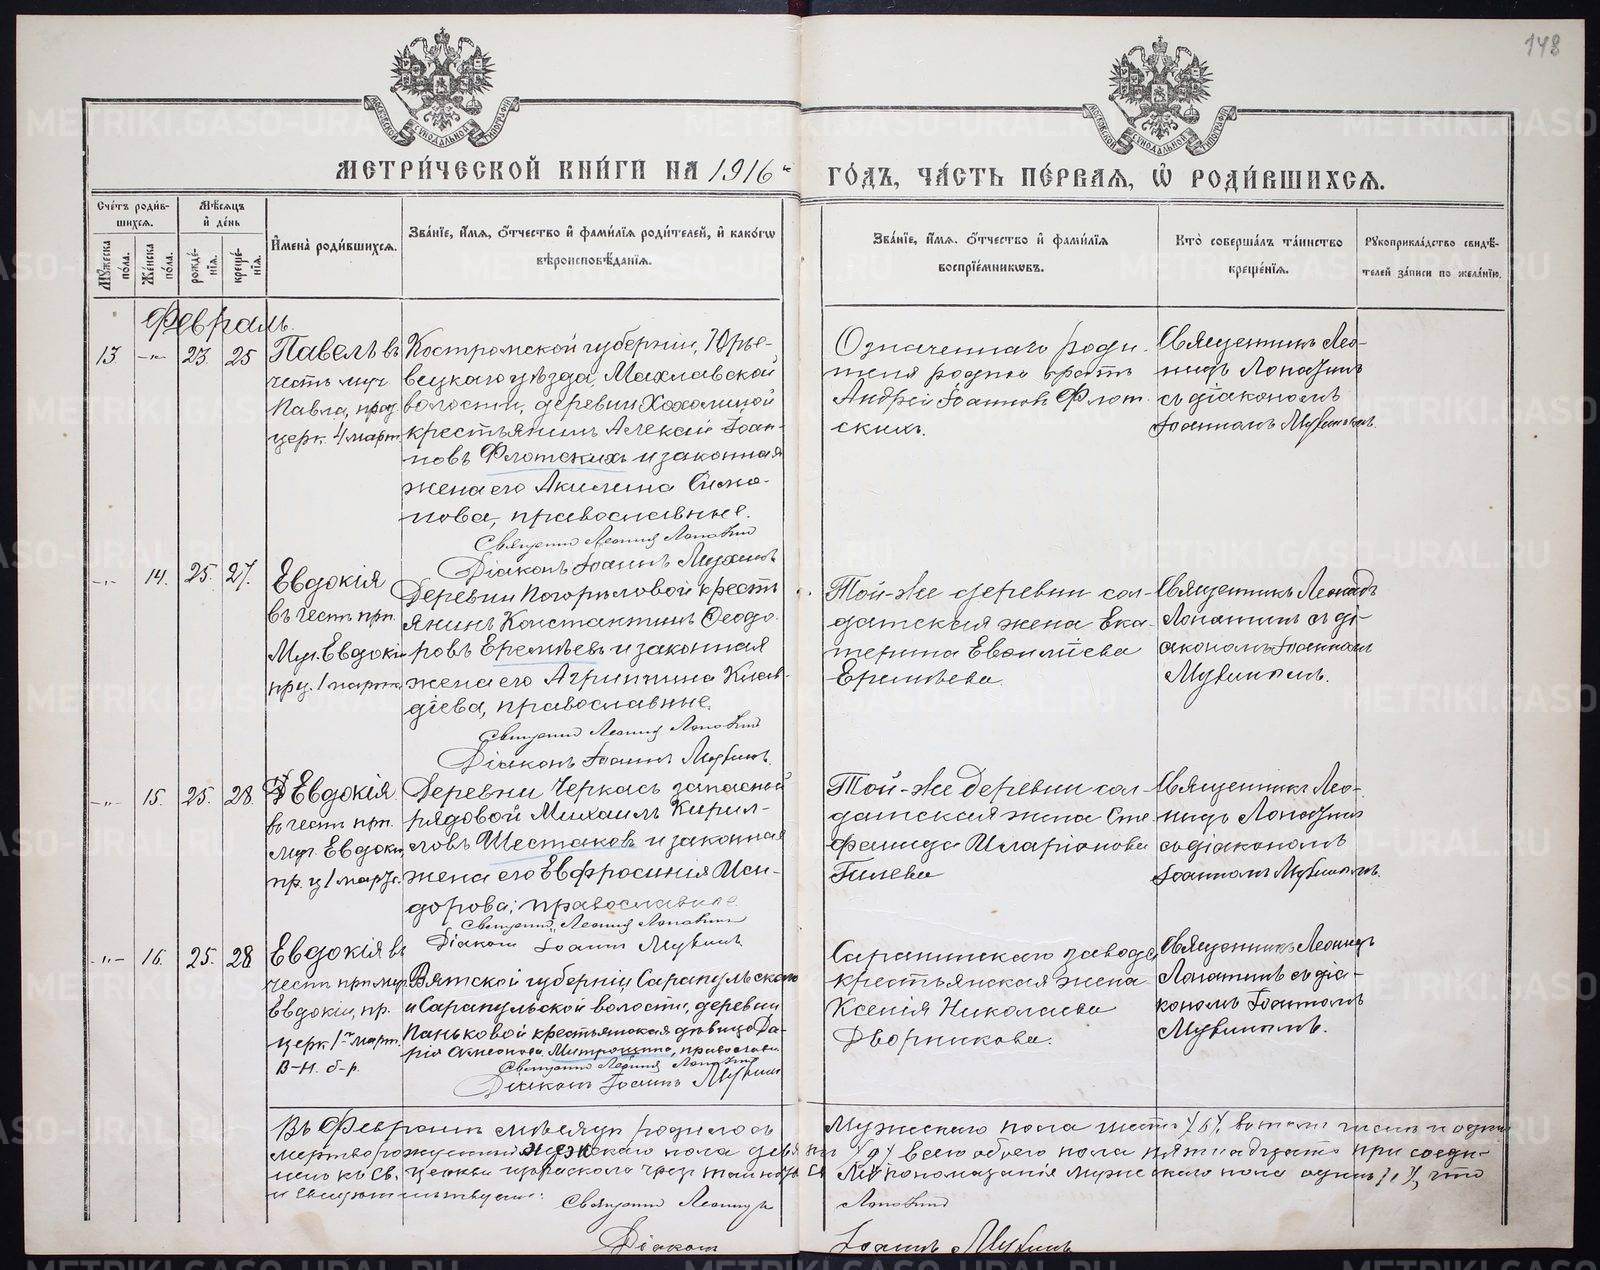 148
МЕТРИ́ЧЕСКОЙ КНИ́ГИ НА 1916 й
ГО́ДЪ, ЧА́СТЬ ПЕ́РВАЯ, Ѡ҆ РОДИ́ВШИХСЯ.
Сче́тъ роди́в-
шихся.
Мѣ́сяцъ
и҆ де́нь
Мꙋ́жеска
по́ла.
Же́нска
по́ла.
рожде́-
нїѧ.
креще́-
нїѧ.
И҆мена̀ роди́вшихся.
Зва́нїе, и҆́мѧ, о҆́тчество и҆ фами́лїѧ роди́телей, и҆ како́гѡ
вѣроисповѣ́данїѧ.
Зва́нїе, и҆́мѧ, о҆́тчество и҆ фами́лїѧ
воспрїе́мникѡвъ.
Кто̀ соверша́лъ та́инство
креще́нїѧ.
Рꙋкоприкла́дство свидѣ́-
телей за́писи по жела́нїю.
Февраль.
13 -"- 23 25
Павелъ въ
честь муч.
Павла, праз.
церк. 4 март.
Костромской губерніи, Юрье-
вецкаго уѣзда, Махлавской
волости, деревни
крестьянинъ Алексѣй Іоан-
новъ Флотскихъ и законная
жена его Акилина Симо-
нова, православные.
Священник Леонид Лопатин
Діаконъ Іоаннъ Мухинъ
Означеннаго роди-
теля родной братъ
Андрей Іоанновъ Флот-
скихъ.
Священникъ Лео-
нидъ Лопатинъ
съ діакономъ
Іоанномъ Мухинымъ.
-"- 14. 25. 27.
Евдокія
въ честь прп.
Муч. Евдокіи
пр. ц. 1 марта
Деревни Погорѣловой крестъ
янинъ Константинъ Ѳеодо-
ровъ Еремѣевъ и законная
жена его Агриппина Клав-
діева, православные.
Священник Леонид Лопатин
Діаконъ Іоаннъ Мухинъ.
Той-же деревни сол-
датская жена Ека-
терина
Еремѣева.
Священникъ Леонидъ
Лопатинъ съ ді-
акономъ Іоанномъ
Мухинымъ.
-"- 15. 25. 28.
Евдокія
въ честь прп.
муч. Евдокіи,
пр. ц. 1 марта.
Деревни Черкасъ запасной
рядовой Михаилъ Кирил-
ловъ Шестаковъ и законная
жена его Евфросинія Иси-
дорова, православные.
Священник Леонид Лопатин
Діаконъ Іоаннъ Мухинъ
Той-же деревни сол-
датская жена Сте-
фанида Иларіонова
Гилева
Священникъ Лео-
нидъ Лопатинъ
съ діакономъ
Іоанномъ Мухинымъ.
-"- 16. 25. 28
Евдокія въ
честь прп. муч.
Евдокіи, пр.
церк. 1го март.
В-н. б-р.
Вятской губерніи Сарапульскаго
и Сарапульской волости, деревни
Паньковой крестьянская дѣвица Да-
рія Симеонова Митрошина, православн.
Священник Леонид Лопатин
Діаконъ Іоаннъ Мухин
Саранинскаго завода
крестьянская жена
Ксенія Николаева
Дворникова.
Священникъ Леонидъ
Лопатинъ съ діа-
кономъ Іоанномъ
Мухинымъ.
Въ Февралѣ мѣсяцѣ родилось Мужескаго пола шесть /6/, въ томъ числѣ и одинъ
мертворожденный, женскаго пола девять /9/ всего обоего пола пятнадцать при соеди-
нено къ Св. церкви изъ раскола чрез таинство Св. Мѵропомазанія мужескаго пола одинъ /1/, что
и свидѣтельствуемъ: Священник Леонидъ Лопатин
Діаконъ Іоаннъ Мухинъ